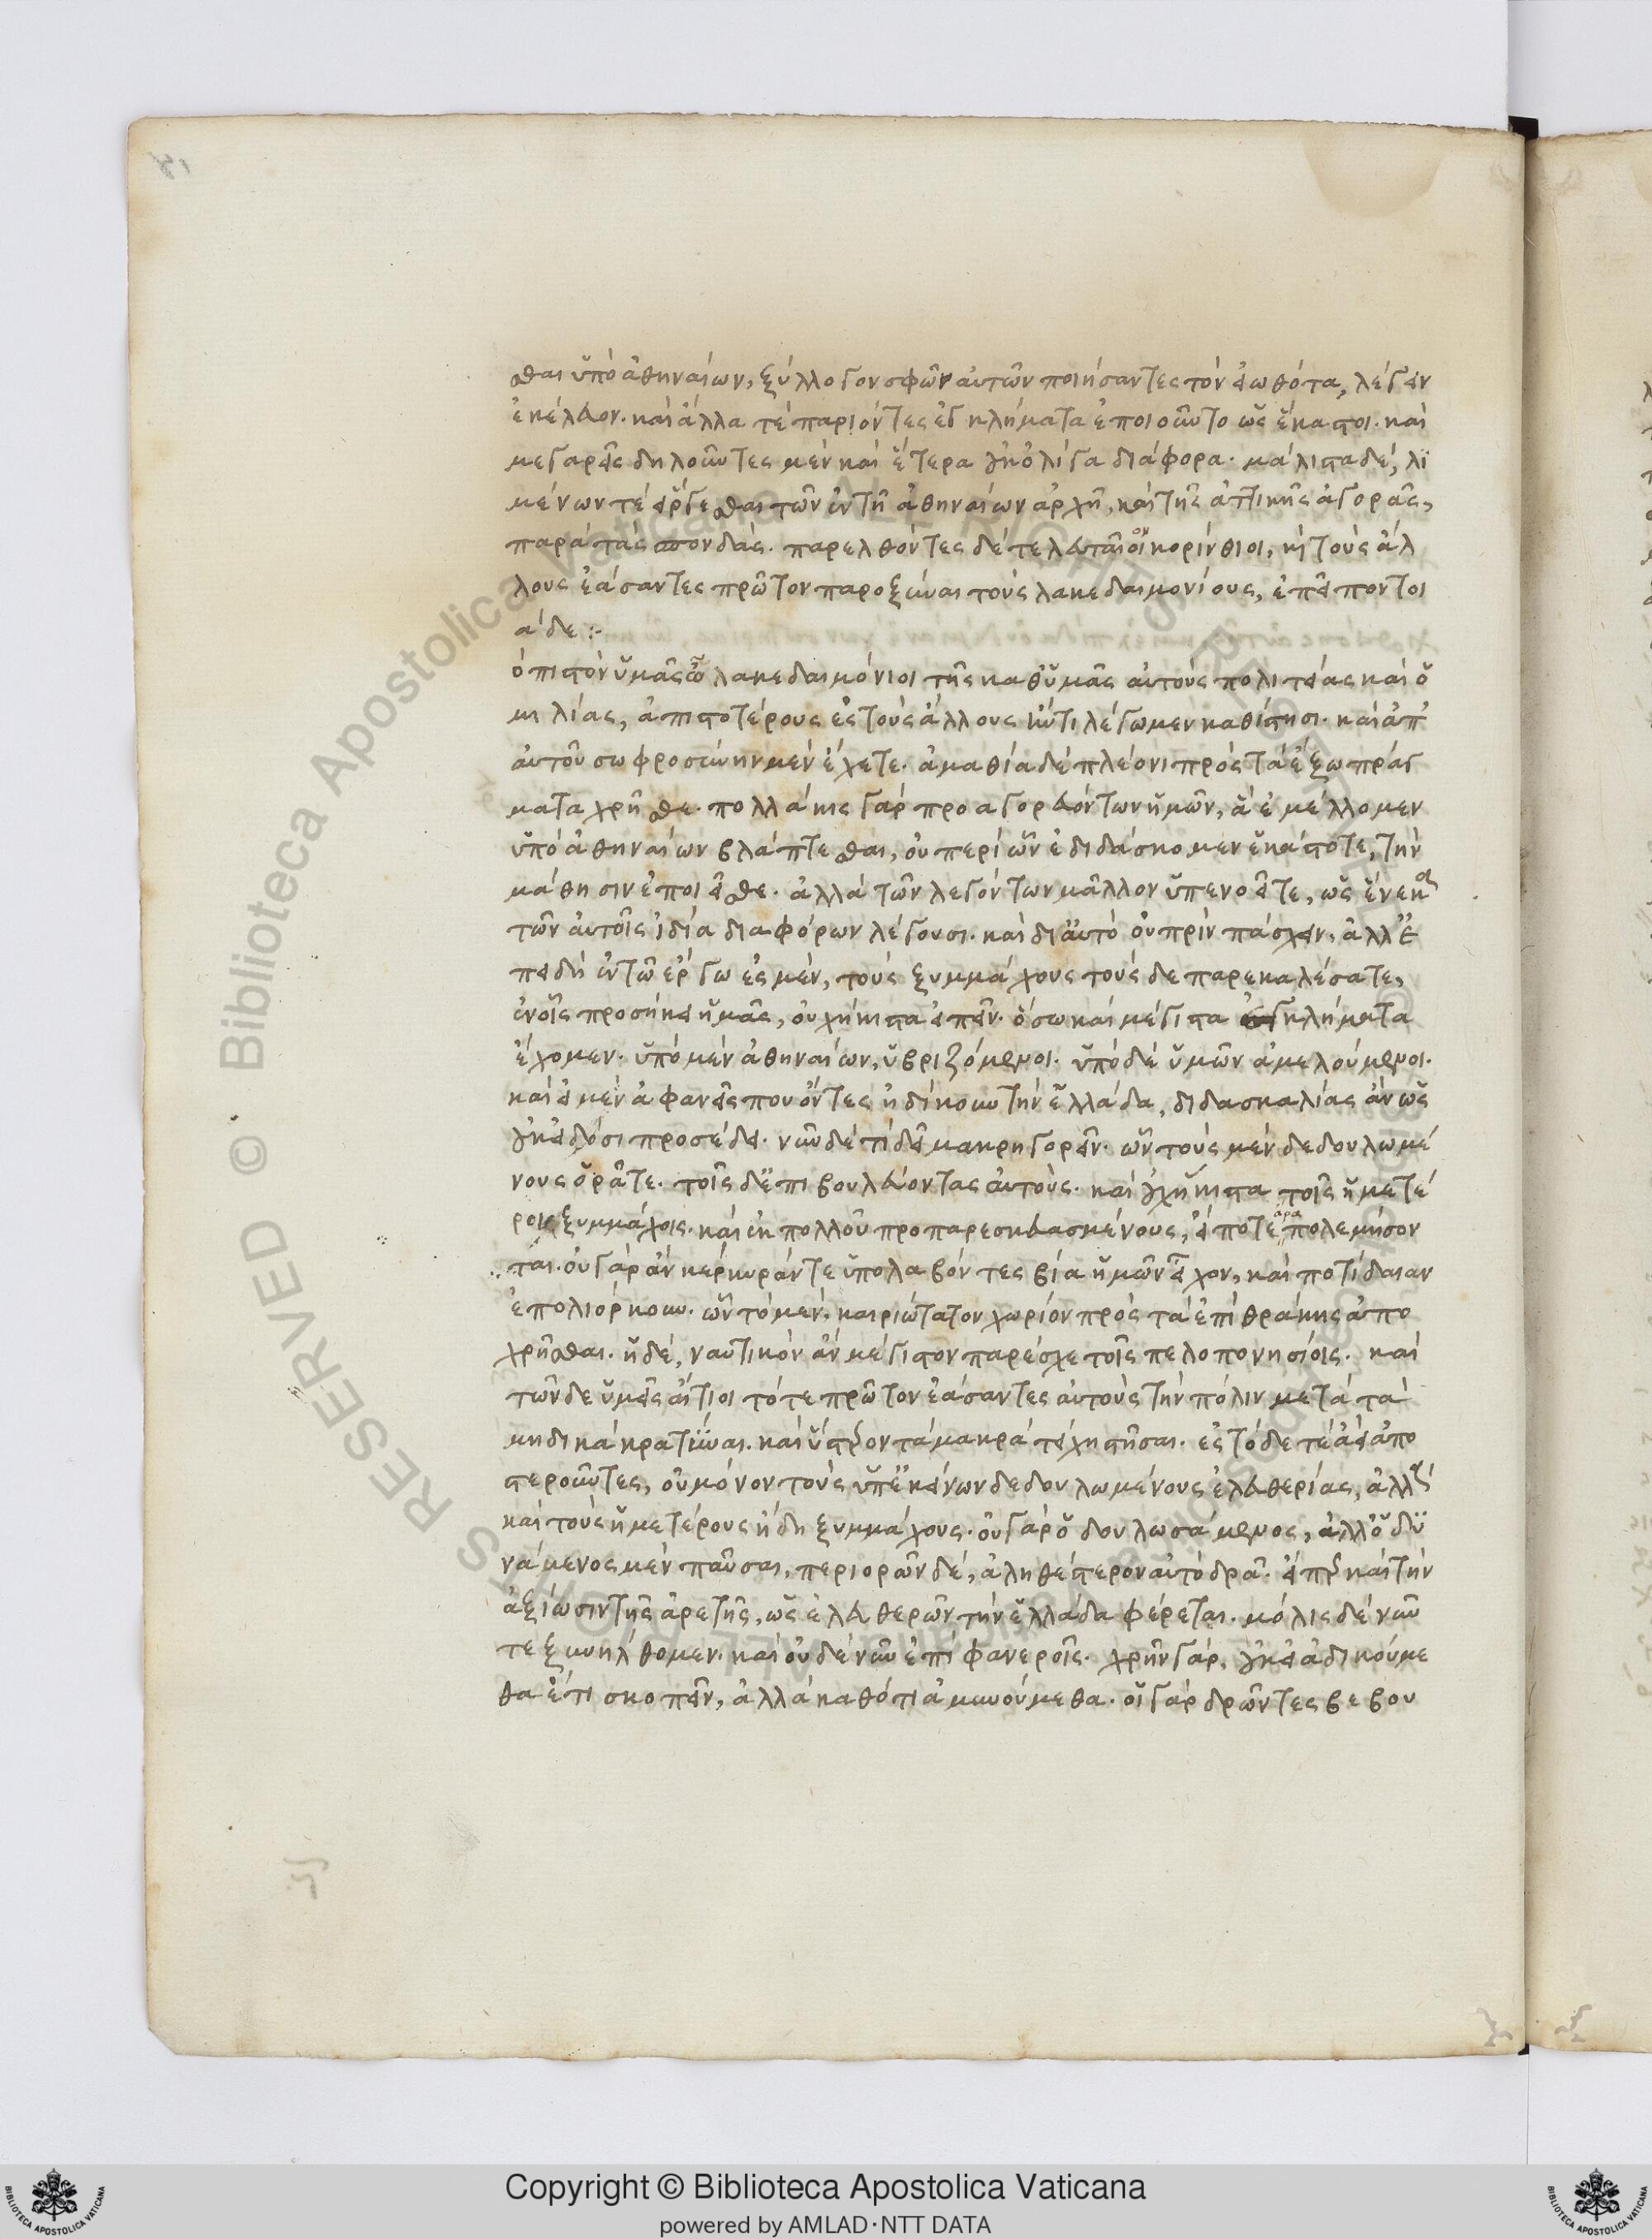 σθαι ὑπὸ ἀθηναίων, ξύλλογον σφῶν αὐτῶν ποιήσαντες τὸν εἰωθότα, λέγειν
ἐκέλευον. καὶ ἄλλα τὲ παριόντες ἐγκλήματα ἐποιοῦντο ὡς ἕκαστοι. καὶ
μεγαρεῖς δηλοῦντες μὲν καὶ ἕτερα οὐκ ὀλίγα διάφορα. μάλιστα δὲ, λι
μένων τὲ εἴργεσθαι τῶν ἐν τῇ ἀθηναίων ἀρχῇ, καὶ τῆς ἀττικῆς ἀγορᾶς,
παρὰ τὰς σπονδάς. παρελθόντες δὲ τελευταῖοι κορίνθιοι, καὶ τοὺς ἀλ
λους ἐάσαντες πρῶτον παροξῦναι τοὺς λακεδαιμονίους, ἐπεῖπον τοι
άδε :-
ὁ πιστὸν ὑμᾶς ὦ λακεδαιμόνιοι τῆς καθ' ὑμᾶς αὐτοὺς πολιτείας καὶ ὁ
μιλίας, ἀπιστοτέρους ἐς τοὺς ἄλλους ἤν τι λέγωμεν καθίστησι. καὶ ἀπ'
αὐτοῦ σωφροσύνην μὲν ἔχετε. ἀμαθία δὲ πλέονι πρὸς τὰ ἔξω πράγ
ματα χρῆσθε. πολλάκις γὰρ προαγορευόντων ἡμῶν, ἃ ἐμέλλομεν
ὑπὸ ἀθηναίων βλάπτεσθαι, οὐ περὶ ὧν ἐδιδάσκομεν ἑκάστοτε, τὴν
μάθησιν ἐποιεῖσθε. ἀλλὰ τῶν λεγόντων μᾶλλον ὑπενοεῖτε, ὡς ἕνεκα
τῶν αὐτοῖς ἰδία διαφόρων λέγουσι. καὶ δι' αὐτὸ οὐ πρὶν πάσχειν, ἀλλ' ἐ
πειδὴ ἐν τῶ ἔργω ἐσμὲν, τοὺς ξυμμάχους τούσδε παρεκαλέσατε,
ἐν οἷς προσήκει ἡμᾶς, οὐχ ἥκιστα εἰπεῖν. ὅσω καὶ μέγιστα ἐγκλήματα
ἔχομεν. ὑπὸ μὲν ἀθηναίων, ὑβριζόμενοι. ὑπὸ δὲ ὑμῶν ἀμελούμενοι.
καὶ εἰ μὲν ἀφανεῖς που ὄντες ἠδίκουν τὴν ἑλλάδα, διδασκαλίας ἂν ὡς
οὐκ εἰδόσι προσέδει. νῦν δὲ τί δεῖ μακρηγορεῖν. ὧν τοὺς μὲν δεδουλωμέ
νους ὁρᾶτε. τοῖς δ' ἐπιβουλεύοντας αὐτοὺς. καὶ οὐχ ἥκιστα τοῖς ἡμετέ
ροις ξυμμάχοις. καὶ ἐκ πολλοῦ προπαρεσκευασμένους, εἴ ποτε ἄρα πολεμήσον
ται. οὐ γὰρ ἂν κέρκυράν τε ὑπολαβόντες βία ἡμῶν εἶχον, καὶ ποτίδαιαν
ἐπολιόρκουν. ὧν τὸ μὲν, καιριώτατον χωρίον πρὸς τὰ ἐπὶ θράκης ἀπο
χρῆσθαι. ἡ δὲ, ναυτικὸν ἂν μέγιστον παρέσχε τοῖς πελοπονησίοις. καὶ
τῶνδε ὑμεῖς αἴτιοι τό τε πρῶτον ἐάσαντες αὐτοὺς τὴν πόλιν μετὰ τὰ
μηδικὰ κρατῦναι. καὶ ὕστερον τὰ μακρὰ τείχη στῆσαι. ἐς τόδε τὲ ἀεὶ ἀπο
στεροῦντες, οὐ μόνον τοὺς ὑπ' ἐκείνων δεδουλωμένους ἐλευθερίας, ἀλλὰ
καὶ τοὺς ἡμετέρους ἤδη ξυμμάχους. οὐ γὰρ ὁ δουλωσάμενος, ἀλλ' ὁ δυ
νάμενος μὲν παῦσαι, περιορῶν δὲ, ἀληθέστερον αὐτὸ δρᾶ. εἴπερ καὶ τὴν
ἀξίωσιν τῆς ἀρετῆς, ὡς ἐλευθερῶν τὴν ἑλλάδα φέρεται. μόλις δὲ νῦν
τε ξυνήλθομεν. καὶ οὐδὲ νῦν ἐπὶ φανεροῖς. χρῆν γὰρ, οὐκ εἰ ἀδικούμε
θα ἔτι σκοπεῖν, ἀλλὰ καθότι ἀμυνούμεθα. οἱ γὰρ δρῶντες βεβου
Copyright © Biblioteca Apostolica Vaticana
powered by AMLAD·NTT DATA